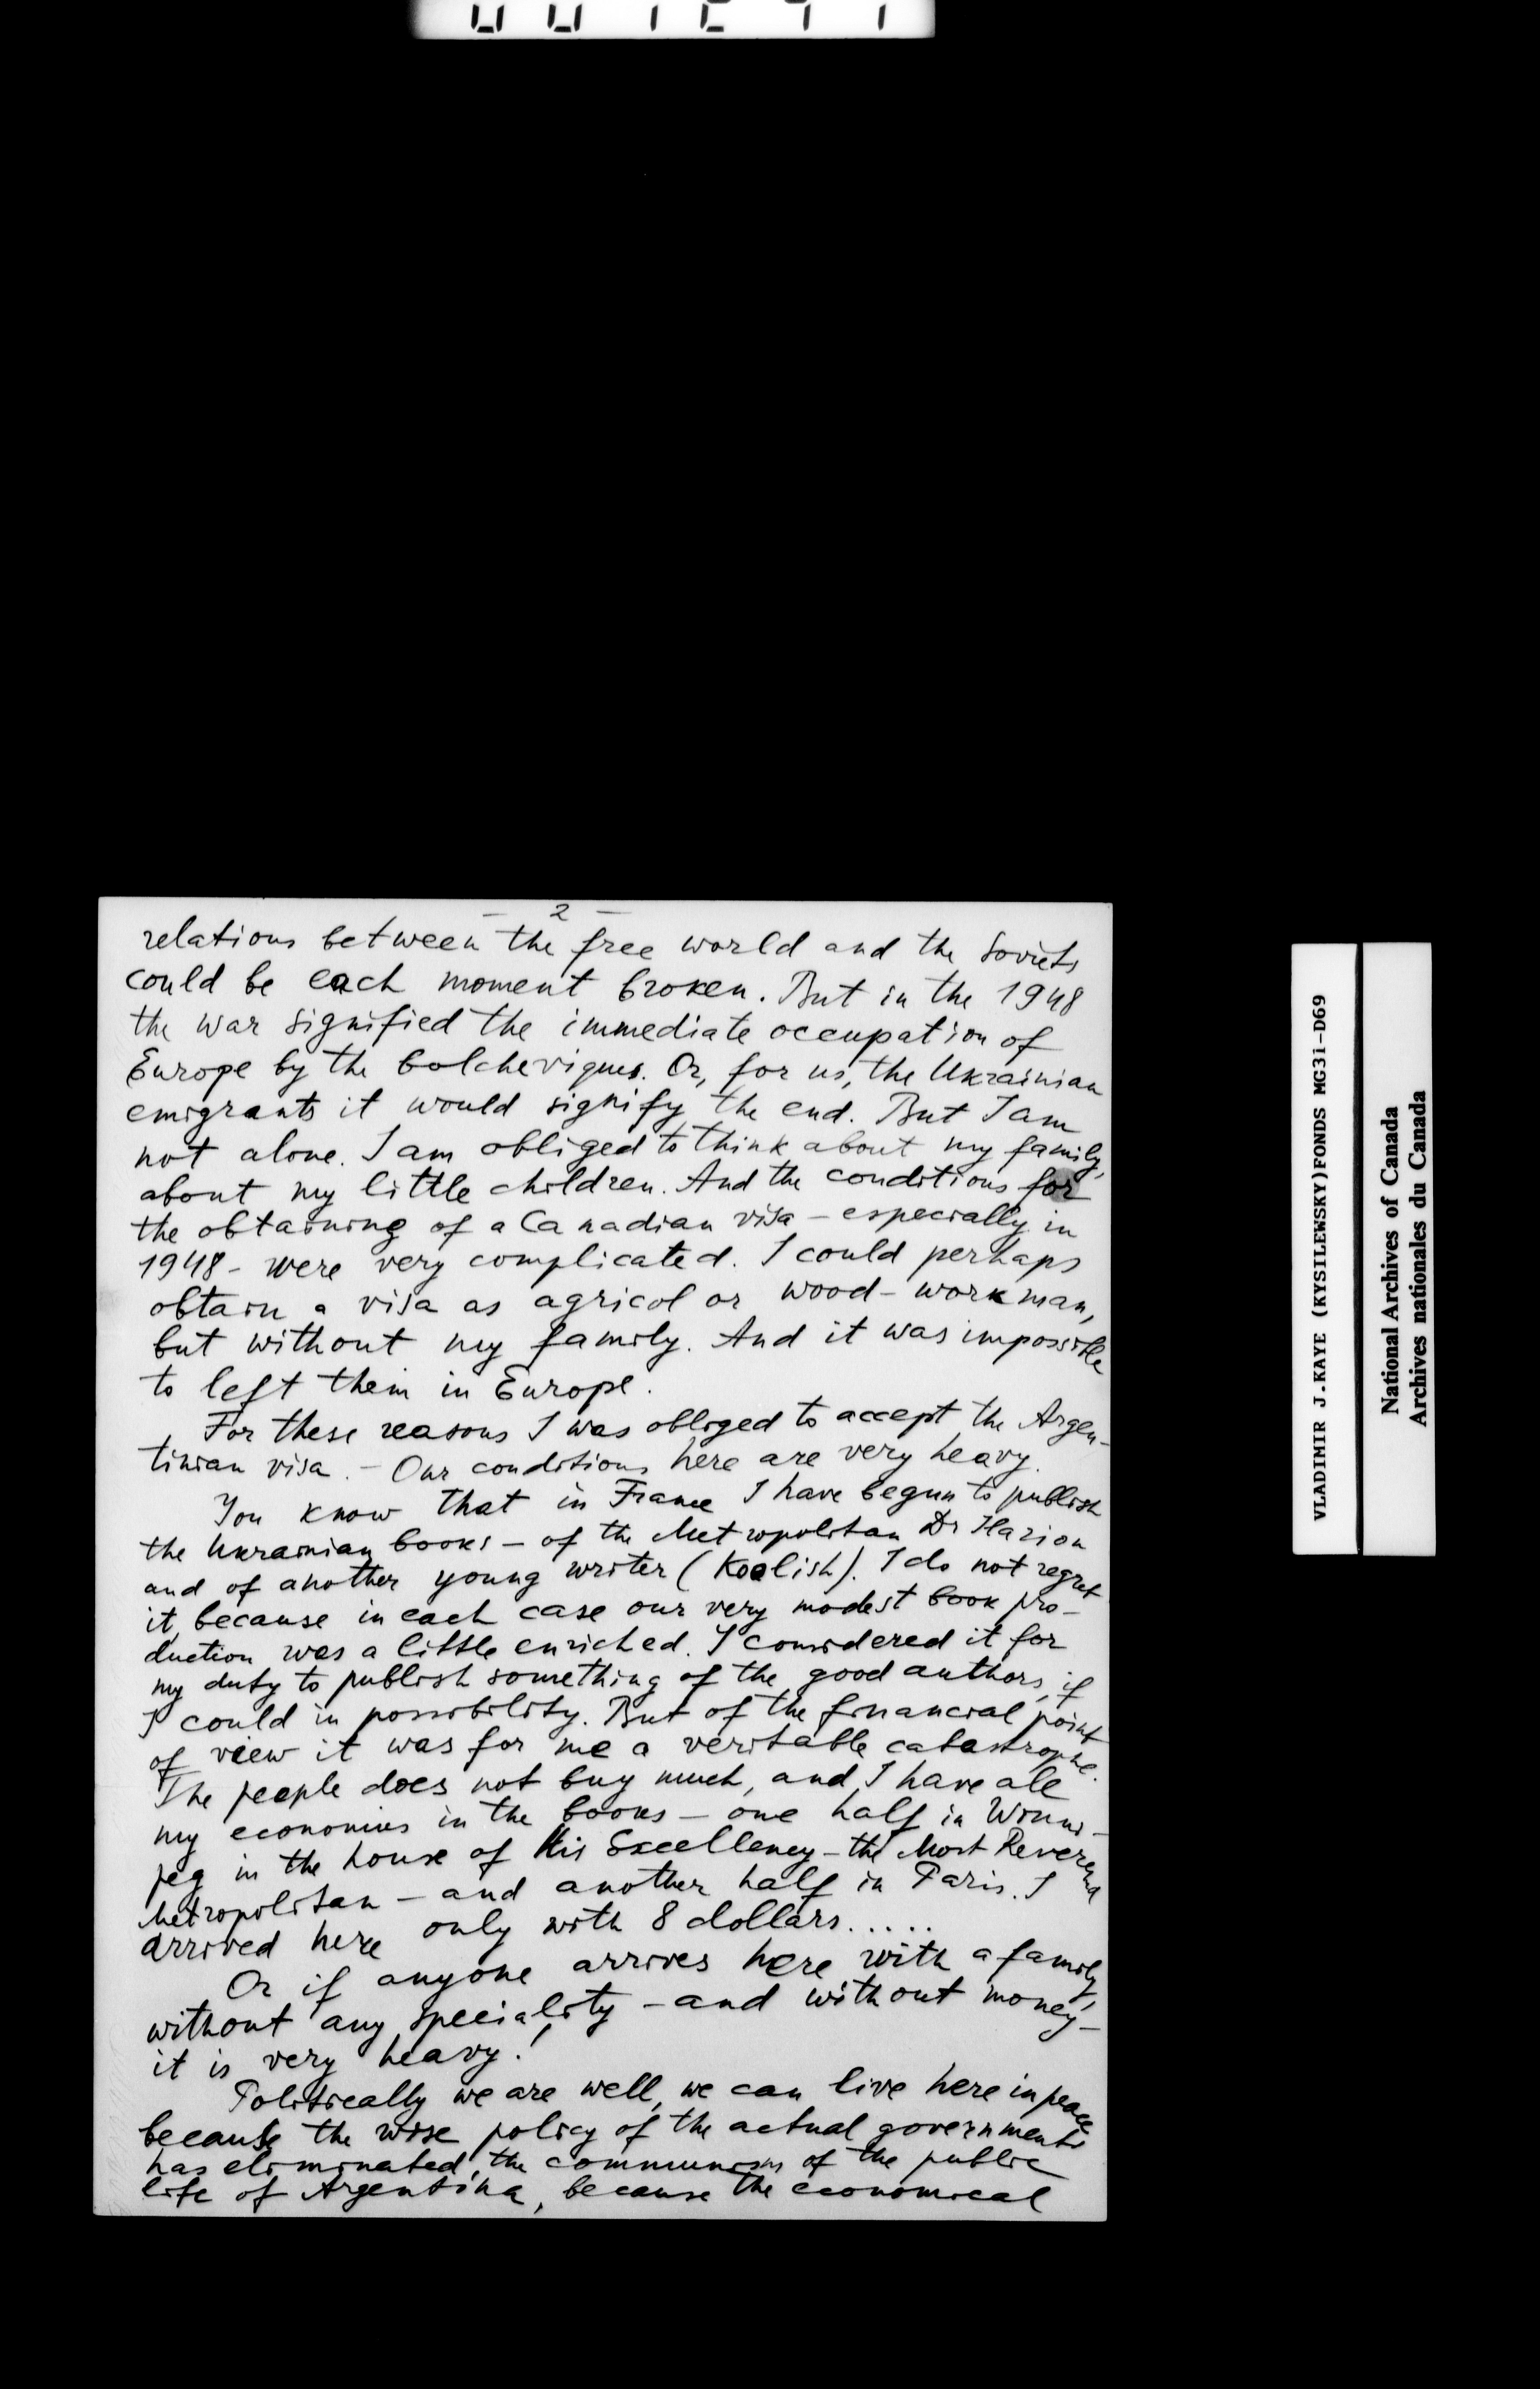 - 2 -
relations between the free world and the Soviets
could be each moment broken. But in the 1948
the war signified the immediate occupation of
Europe by the bolcheviques. Or, for us, the Ukrainian
emigrants it would signify the end. But I am
not alone. I am obliged to think about my family,
about my little children. And the conditions for
the obtaining of a Canadian visa - especially in
1948 - were very complicated. I could perhaps
obtain a visa as agricol or wood-workman,
but without my family. And it was impossible
to left them in Europe.
For these reasons I was obliged to accept the Argen-
tinian visa. - Our conditions here are very heavy.
You know that in France I have begun to publish
the Ukrainian books - of the Metropolitan Dr Ilarion
and of another young writer (Koolish). I do not regret
it, because in each case our very modest book pro-
duction was a little enriched. I considered it for
my duty to publish something of the good authors, if
I could in possibility. But of the financial point
of view it was for me a veritable catastrophe.
The people does not buy much, and I have all
my economies in the books - one half in Winni-
peg in the house of His Excellency - the Most Reverend
Metropolitan - and another half in Paris. I
arrived here only with 8 dollars.....
Or if anyone arrives here with a family,
without any speciality - and without money -
it is very heavy!
Politically we are well, we can live here in peace
because the wise policy of the actual governments
has eliminated the communism of the public
life of Argentina, because the economical
VLADIMIR J.KAYE (KYSILEWSKY)FONDS MG31-D69
National Archives of Canada
Archives nationales du Canada